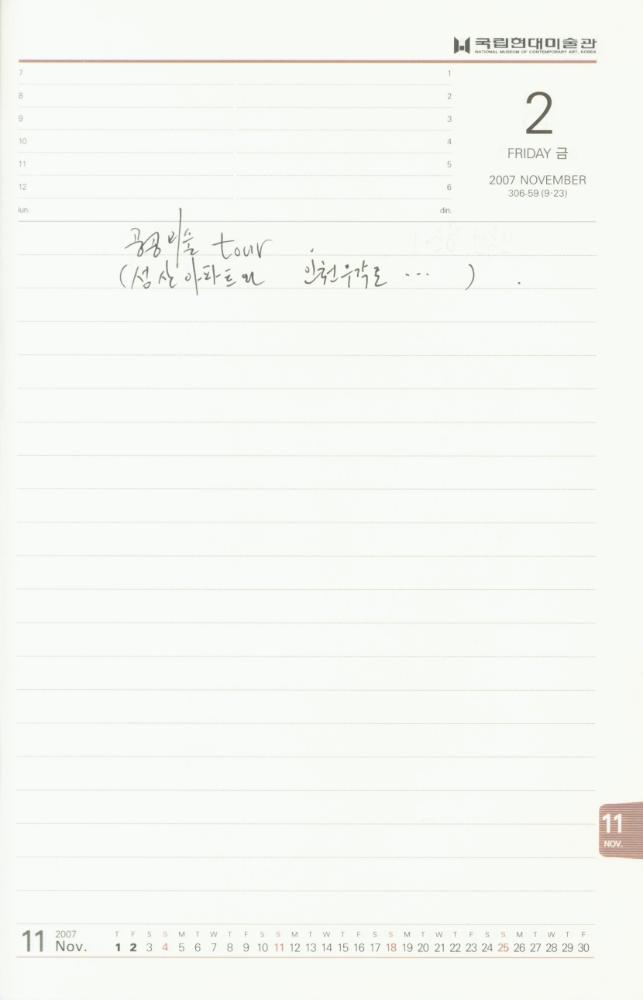 국립현대미술관
NATIONAL MUSEUM OF CONTEMPORARY ART, KOREA
7 1
8 2
9 3
10 4
11 5
12 6
lun. din.
2
FRIDAY 금
2007 NOVEMBER
306-59 (9·23)
공공미술 tour
(성산아파트와 인천우각로 ... )
11
NOV.
11 2007 Nov.
T F S S M T W T F S S M T W T F S S M T W T F S S M T W T F
1 2 3 4 5 6 7 8 9 10 11 12 13 14 15 16 17 18 19 20 21 22 23 24 25 26 27 28 29 30